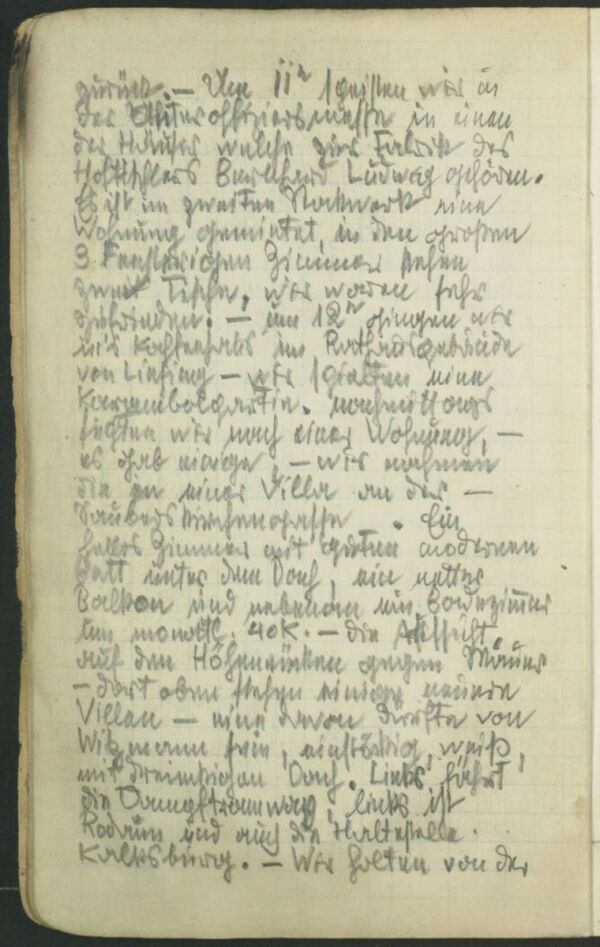 zurück. — Um 11ʰ speisten wir in
der Unteroffiziersmesse in einem
der Häuser welche zur Fabrik des
Hoftischlers Bernhard Ludwig gehören.
Es ist im zweiten Stockwerk eine
Wohnung gemietet, in dem großen
3 Fenstrigen Zimmer stehen
zwei Tische, wir waren sehr
zufrieden. — um 12ʰ gingen wir
in's Kaffeehaus im Rathausgebäude
von Liesing — wir spielten eine
Karambolpartie. nachmittags
suchten wir nach einer Wohnung, —
es gab einige, — wir nahmen
die in einer Villa an der —
Kirchengasse. Ein
helles Zimmer mit guten modernen
Bett unter dem Dach, ein netter
Balkon und nebenan ein Badezimmer
um monatl. 40K. — die Aussicht
auf den Höhenrücken gegen Mauer
— dort oben stehen einige neuere
Villen — eine davon dürfte von
Witzmann sein, einstöckig, weiß,
mit dreieckigen Dach. Links fährt
die Dampftramway, links ist
Rodaun und auch die Haltestelle
Kalksburg. — Wir holten von der